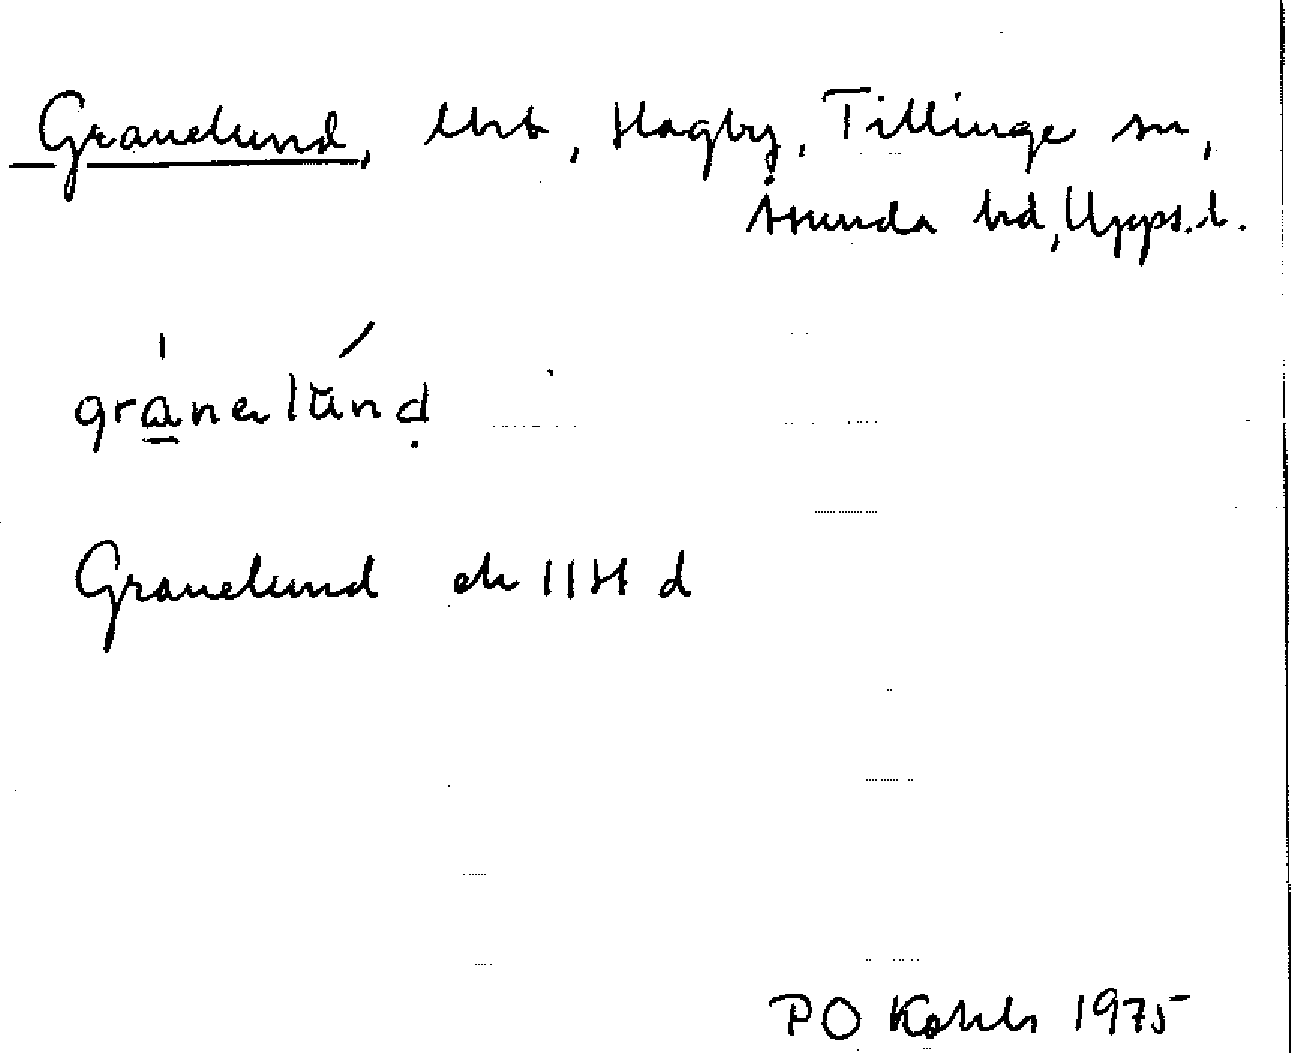 Granelund, lht, Hagby, Tillinge sn,
Åsunda hd, Upps. l.
gra̲nerlŭnḍ
Granelund ek 11H d
PO Kohls 1975